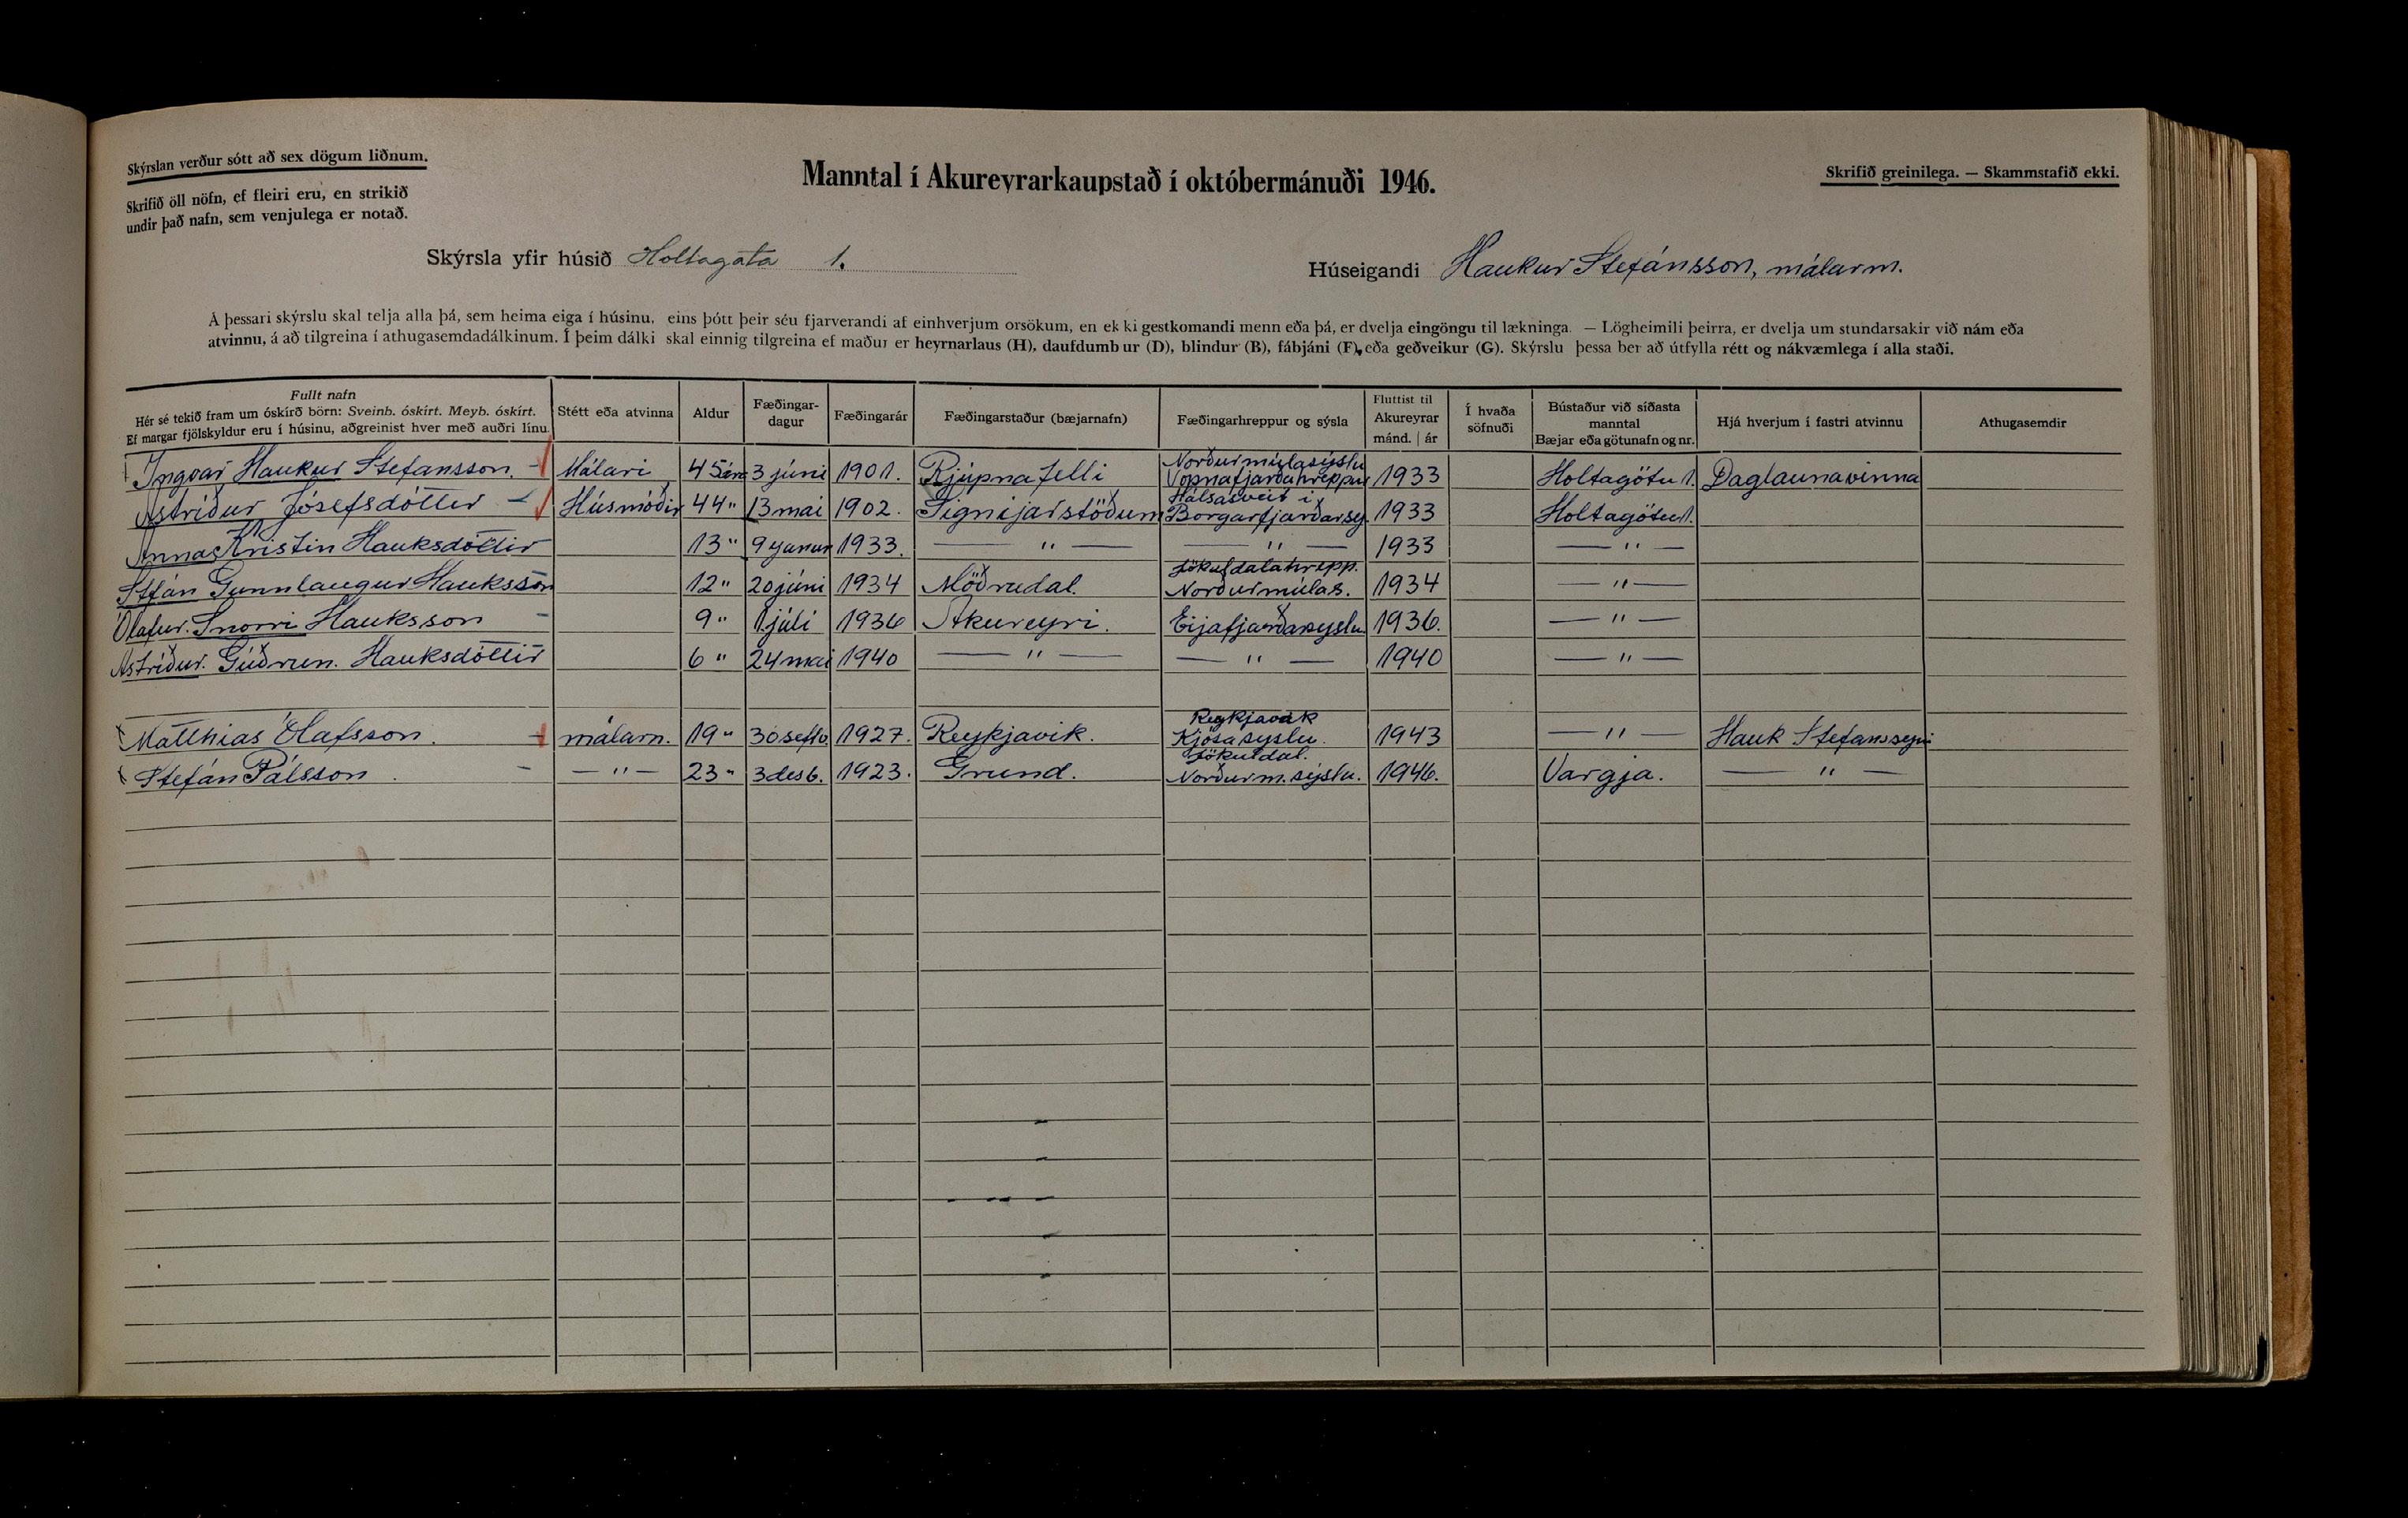 Skýrslan verður sótt að sex dögum liðnum.
Skrifið öll nöfn, ef fleiri eru, en strikið
undir það nafn, sem venjulega er notað.
Manntal í Akureyrarkaupstað í októbermánuði 1946.
Skrifið greinilega. — Skammstafið ekki.
Skýrsla yfir húsið Holtagata 1.
Húseigandi Haukur Stefánsson, málarm.
Á þessari skýrslu skal telja alla þá, sem heima eiga í húsinu, eins þótt þeir séu fjarverandi af einhverjum orsökum, en ekki gestkomandi menn eða þá, er dvelja eingöngu til lækninga. — Lögheimili þeirra, er dvelja um stundarsakir við nám eða
atvinnu, á að tilgreina í athugasemdadálkinum. Í þeim dálki skal einnig tilgreina ef maður er heyrnarlaus (H), daufdumbur (D), blindur (B), fábjáni (F), eða geðveikur (G). Skýrslu þessa ber að útfylla rétt og nákvæmlega í alla staði.
Fullt nafn
Hér sé tekið fram um óskírð börn: Sveinb. óskírt. Meyb. óskírt.
Ef margar fjölskyldur eru í húsinu, aðgreinist hver með auðri línu.
Stétt eða atvinna
Aldur
Fæðingar-
dagur
Fæðingarár
Fæðingarstaður (bæjarnafn)
Fæðingarhreppur og sýsla
Fluttist til
Akureyrar
mánd. | ár
Í hvaða
söfnuði
Bústaður við síðasta
manntal
Bæjar eða götunafn og nr.
Hjá hverjum í fastri atvinnu
Athugasemdir
Ingvar Haukur Stefansson. Málari 45 ára 3 júni 1901. Rjúpnafelli Norðurmúlasýslu Vopnafjarðahreppur 1933 Holtagötu 1. Daglaunavinna
Astriður Jósefsdóttir Húsmóðir 44 " 13 mai 1902. Signijarstöðum Hálsasveit i Borgarfjarðarsy. 1933 Holtagötu 1.
Anna Kristin Hauksdóttir 13 " 9 januar 1933. — " — — " — 1933 — " —
Stfán Gunnlaugur Hauksson 12 " 20 júni 1934 Möðrudal. Jökuldalahrepp. Norðurmúlas. 1934 — " —
Olafur. Snorri Hauksson 9 " 1 júli 1936 Akureyri. Eijafjarðasyslu 1936. — " —
Astríður. Guðrun. Hauksdóttir 6 " 24 mai 1940 — " — — " — 1940 — " —
Matthias Olafsson. málarn. 19 " 30 seftb. 1927. Reykjavik. Reykjavik Kjósasyslu. 1943 — " — Hauk Stefanssyni
Stefán Pálsson. — " — 23 " 3 desb. 1923. Grund. Jökuldal. Norðurm.sýslu. 1946. Vargja. — " —